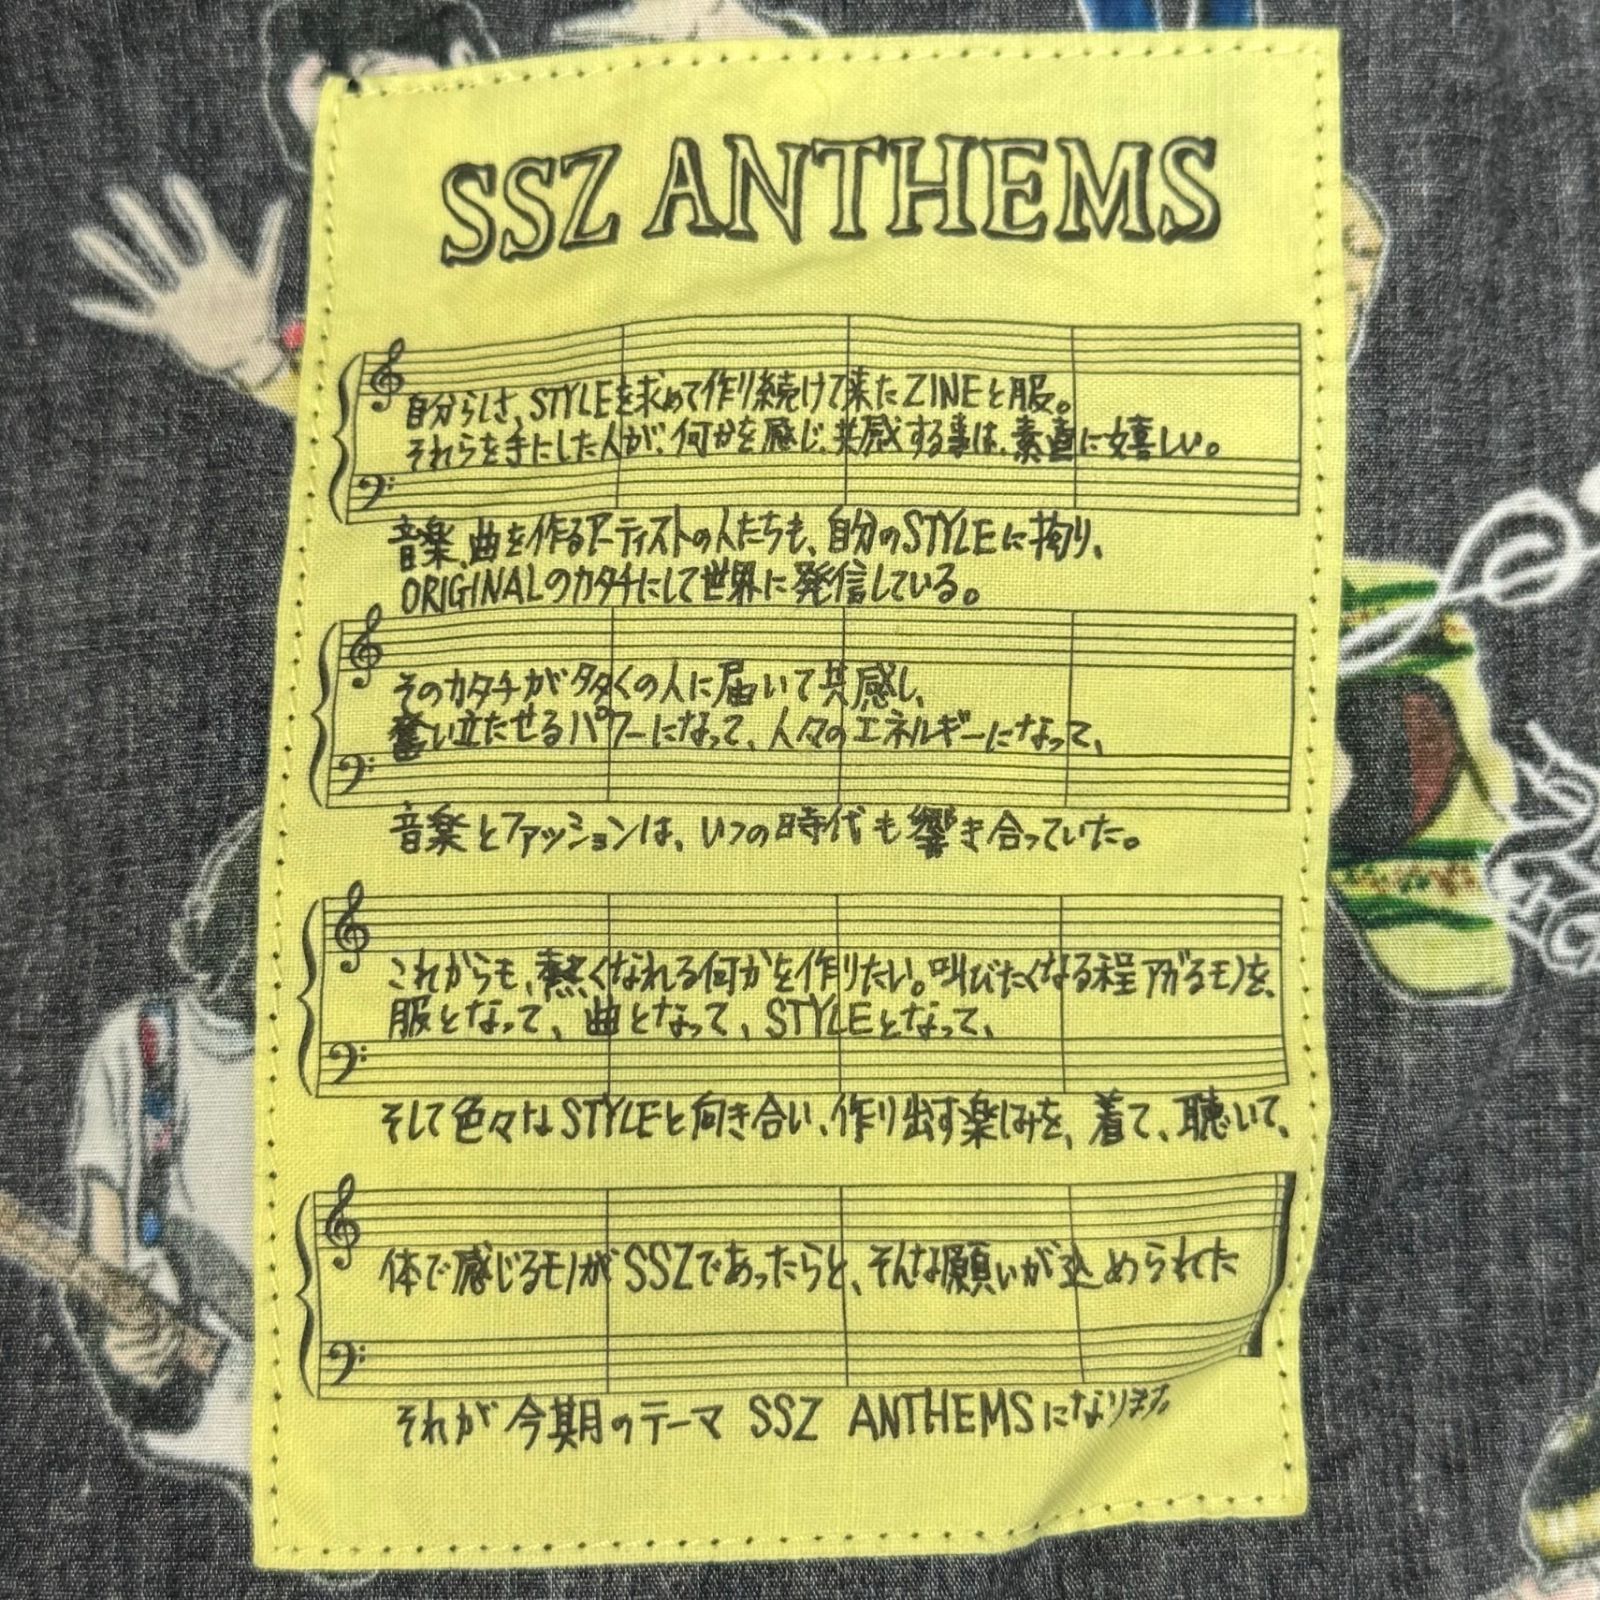 SSZ ANTHEMS
自分らしさ、STYLEを求めて作り続けて来たZINEと服。
それらを手にした人が、何かを感じ、共感する事は、素直に嬉しい。
音楽、曲を作るアーティストの人たちも、自分のSTYLEに拘り、
ORIGINALのカタチにして世界に発信している。
そのカタチが多くの人に届いて共感し、
奮い立たせるパワーになって、人々のエネルギーになって、
音楽とファッションは、いつの時代も響き合っていた。
これからも、熱くなれる何かを作りたい。叫びたくなる程アガるモノを、
服となって、曲となって、STYLEとなって、
そして色々なSTYLEと向き合い、作り出す楽しみを、着て、聴いて、
体で感じるモノがSSZであったらと、そんな願いが込められた
それが今期のテーマ SSZ ANTHEMSになります。